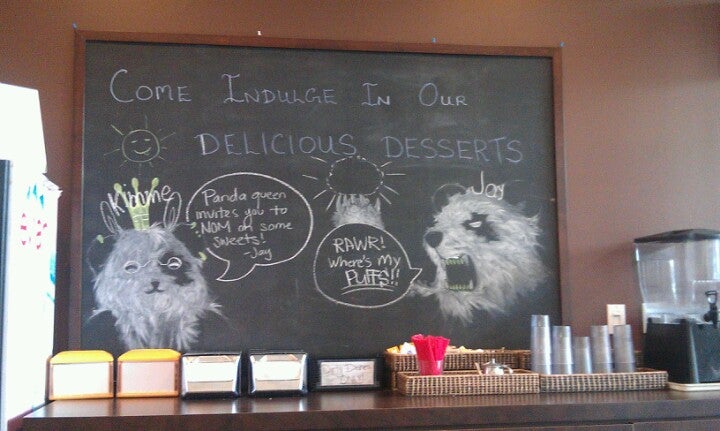 COME INDULGE IN OUR
DELICIOUS DESSERTS
Kimme
Panda queen
invites you to
NOM on some
sweets!
-Jay
RAWR!
Where's my
PUFFS!!
Jay